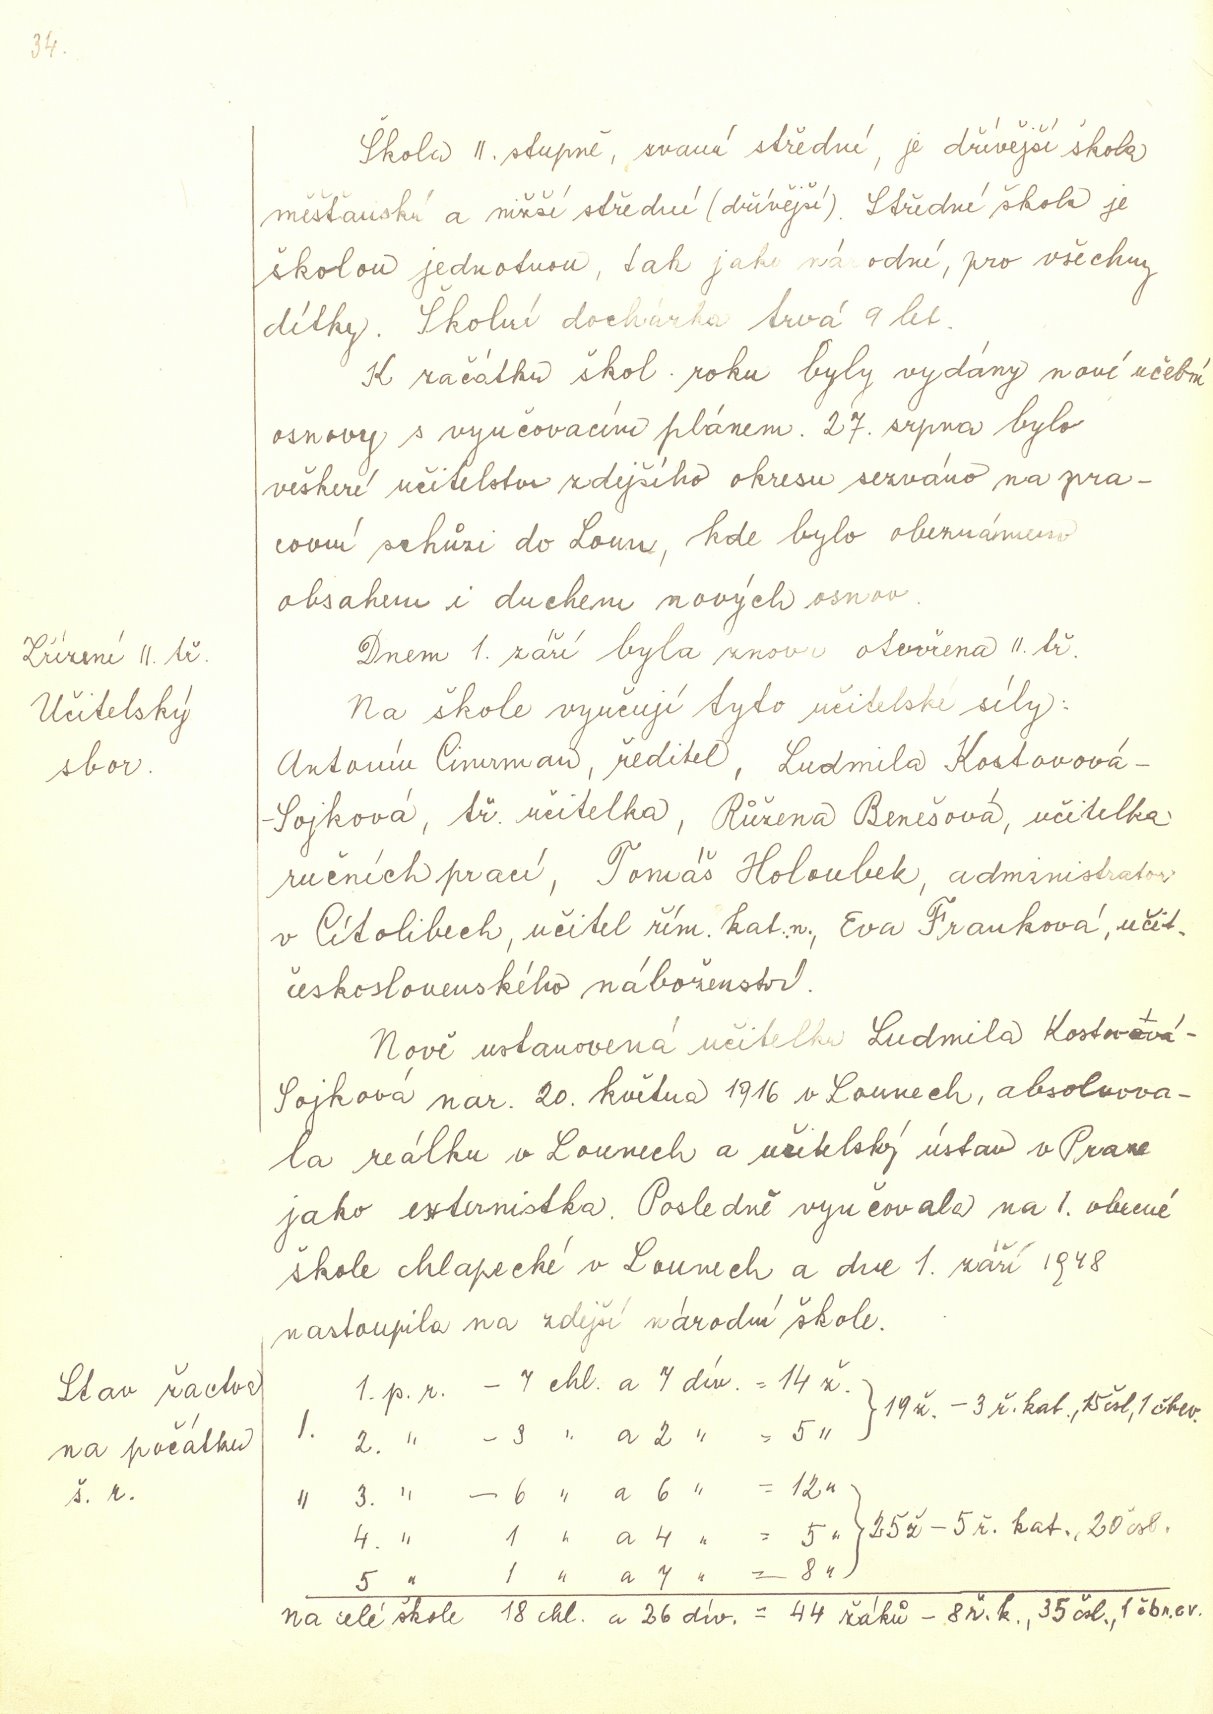 34.
Škola II. stupně, zvaná střední, je dřívější škola
měšťanská a nižší střední (dřívější). Střední škola je
školou jednotnou, tak jako národní, pro všechny
dítky. Školní docházka trvá 9 let.
K začátku škol. roku byly vydány nové učební
osnovy s vyučovacím plánem. 27. srpna bylo
veškeré učitelstvo zdejšího okresu sezváno na pra-
covní schůzi do Loun, kde bylo obeznámeno
obsahem i duchem nových osnov.
Zřízení II. tř.
Dnem 1. září byla znovu otevřena II. tř.
Učitelský
sbor.
Na škole vyučují tyto učitelské síly:
Antonín Cinrman, ředitel, Ludmila Kostovová-
-Sojková, tř. učitelka, Růžena Benešová, učitelka
ručních prací, Tomáš Holoubek, administrator
v Cítolibech, učitel řím. kat. n., Eva Franková, učit.
československého náboženství.
Nově ustanovená učitelka Ludmila Kostovová-
Sojková nar. 20. května 1916 v Lounech, absolvova-
la reálku v Lounech a učitelský ústav v Praze
jako externistka. Posledně vyučovala na I. obecné
škole chlapecké v Lounech a dne 1. září 1948
nastoupila na zdejší národní škole.
Stav žactva
na počátku
š. r.
I. 1. p. r. - 7 chl. a 7 dív. = 14 ž.
2. " - 3 " a 2 " = 5 " } 19 ž. - 3 ř. kat., 15 čsl, 1 čbev.
II 3. " - 6 " a 6 " = 12 "
4. " 1 " a 4 " = 5 " } 25 ž - 5 ř. kat., 20 čsl.
5 " 1 " a 7 " = 8 "
na celé škole 18 chl. a 26 dív. = 44 žáků - 8 ř. k., 35 čsl., 1 čbr. ev.